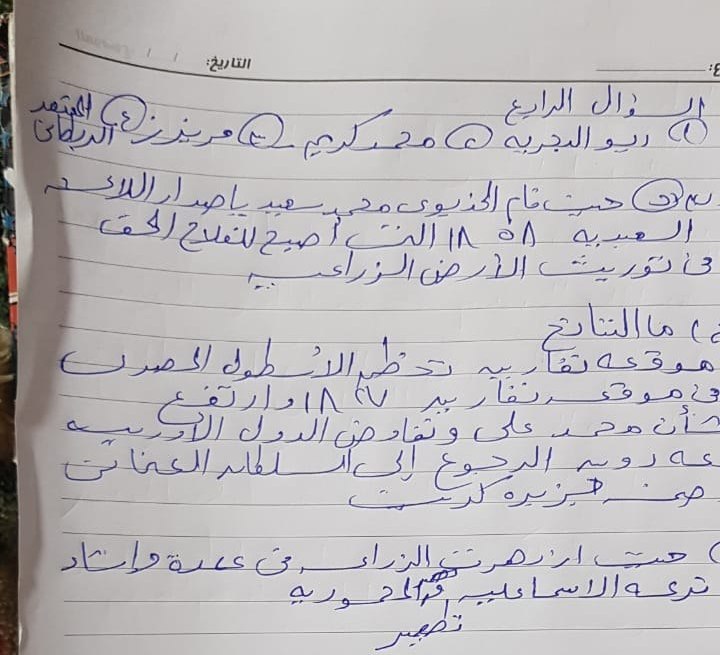 التاريخ: / /
السؤال الرابع
① ريو البجريه ② محمد كريم ③ مريدرز ④ المعتمد البريطانى
حيث قام الخديوى محمد سعيد بإصدار اللائحه
السعيديه ١٨٥٨ التى أصبح للفلاح الحق
فى توريث الأرض الزراعيه
ما النتائج
موقعه نفارينه تحطم الأسطول المصرى
فى موقعه نفارينه ١٨٢٧ وارتفع
شأن محمد على وتفاوض الدول الأوربيه
معه دون الرجوع إلى السلطان العثمانى
ضمت جزيره كريت
حيث ازدهرت الزراعه فى عهدة وإنشاء
ترعه الاسماعيليه المحموديه
تطهير